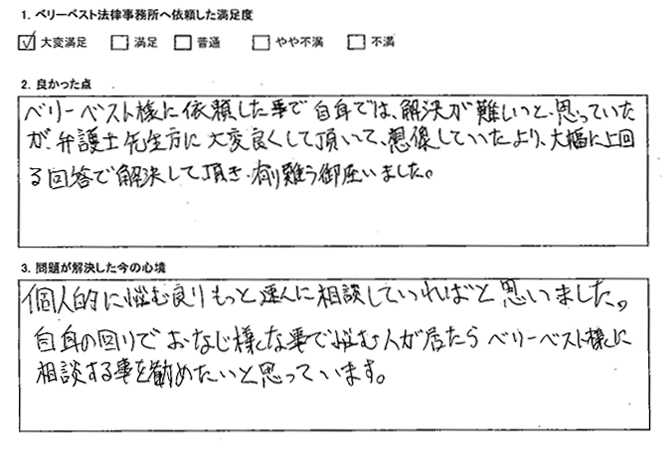 1. ベリーベスト法律事務所へ依頼した満足度
☑ 大変満足 □ 満足 □ 普通 □ やや不満 □ 不満
2. 良かった点
ベリーベスト様に依頼した事で自身では、解決が難しいと思っていた
が、弁護士先生方に大変良くして頂いて、想像していたより、大幅に上回
る回答で解決して頂き、有り難う御座いました。
3. 問題が解決した今の心境
個人的に悩む良りもっと速んに相談していればと思いました。
自身の回りでおなじ様な事で悩む人が居たらベリーベスト様に
相談する事を勧めたいと思っています。